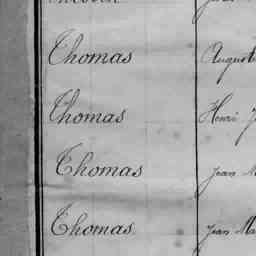 Thomas August
Thomas Henri J
Thomas Jean M
Thomas Jean Ma